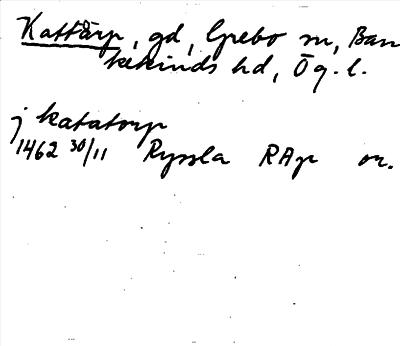 Kattärp, gd, Grebo sn, Ban
kekinds hd, Ög. l.
j katatorp
1462 30/11 Ryssla RAp or.